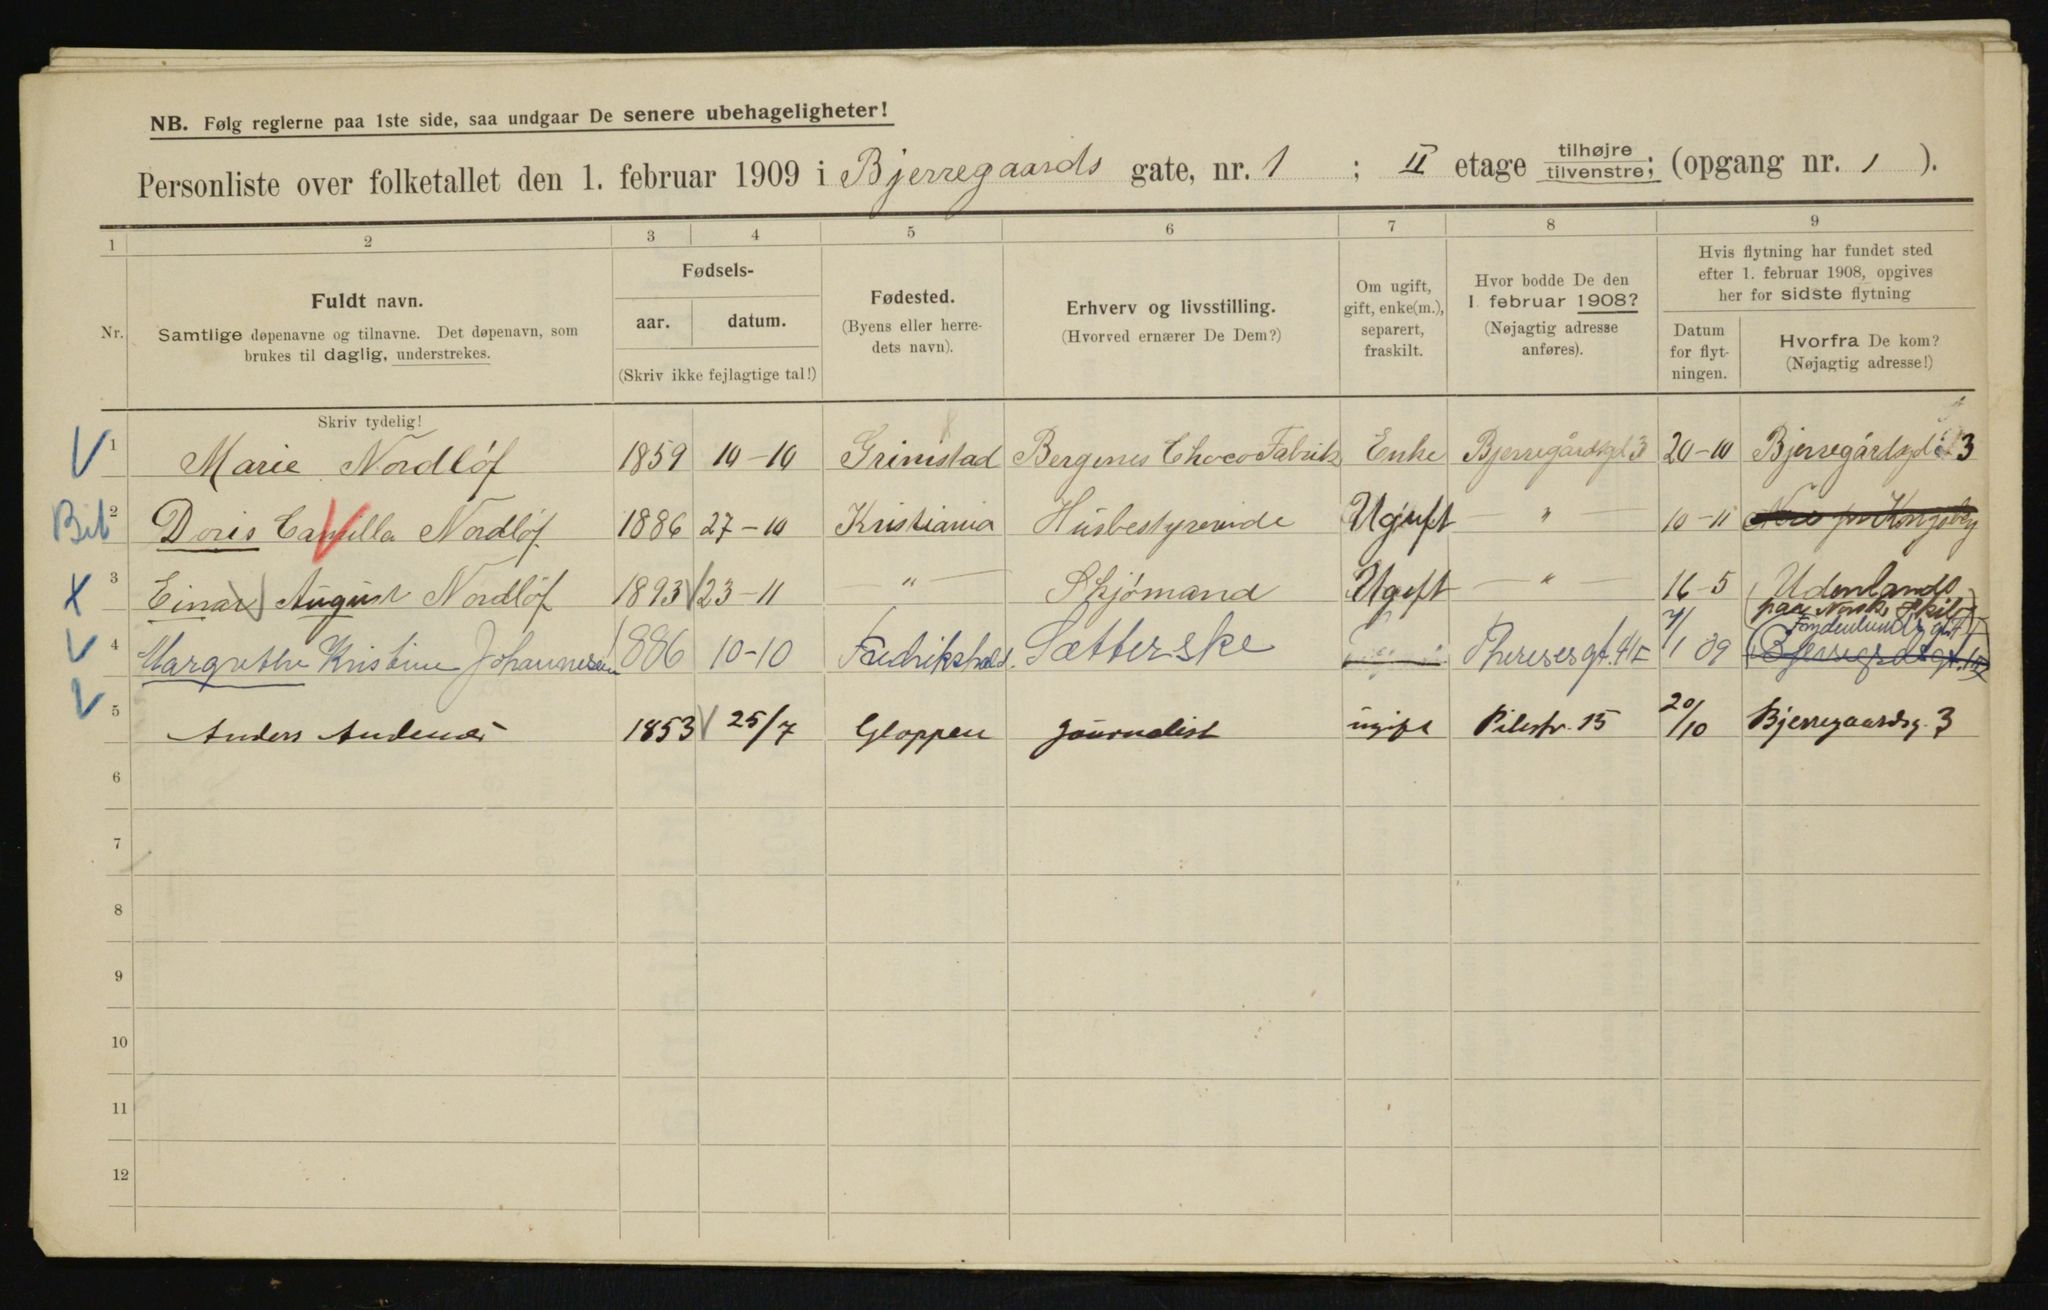 NB. Følg reglerne paa 1ste side, saa undgaar De senere ubehageligheter!
Personliste over folketallet den 1. februar 1909 i Bjerregaards gate, nr. 1 ; II etage tilhøjre tilvenstre; (opgang nr. 1 ).
1 2 3 4 5 6 7 8 9
Nr.
Fuldt navn.
Samtlige døpenavne og tilnavne. Det døpenavn, som
brukes til daglig, understrekes.
Fødsels-
aar. datum.
(Skriv ikke fejlagtige tal!)
Fødested.
(Byens eller herre-
dets navn).
Erhverv og livsstilling.
(Hvorved ernærer De Dem?)
Om ugift,
gift, enke(m.),
separert,
fraskilt.
Hvor bodde De den
1. februar 1908?
(Nøjagtig adresse
anføres).
Hvis flytning har fundet sted
efter 1. februar 1908, opgives
her for sidste flytning
Datum
for flyt-
ningen.
Hvorfra De kom?
(Nøjagtig adresse!)
Skriv tydelig!
1 Marie Nordløf 1859 10-10 Grimstad Bergenes Choco Fabrik Enke Bjerregårdsgd 3 20-10 Bjerregårdsgd 3
Bib 2 Doris Camilla Nordløf 1886 27-10 Kristiania Husbestyrerinde Ugift — " — 10-11 Nore pr Kongsberg
x 3 Einar August Nordløf 1893 23-11 — " — Skjømand Ugift — " — 16-5 Udenlands
paa Norsk Skib
4 Margrethe Kristine Johannesen 1886 10-10 Fredrikshald. Sætterske Thereses gt. 41 1/1 09
5 Anders Andenæs 1853 25/7 Gloppen Journalist ugift Pilestr. 15 20/10 Bjerregaardsg. 3
6
7
8
9
10
11
12